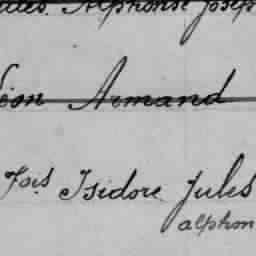 Jules. Alphonse Joseph
Léon Armand
Fois Isidore Jules
alphon